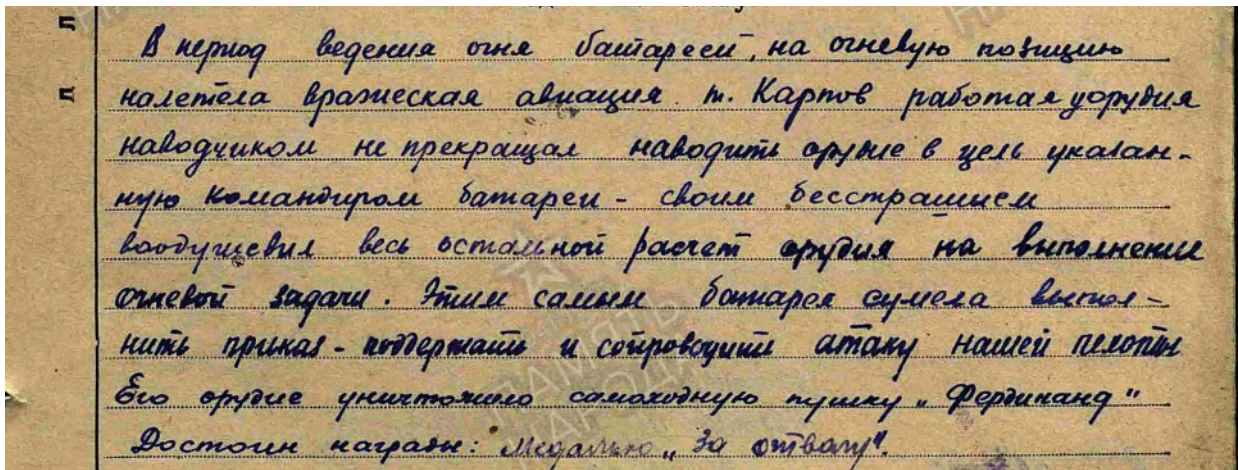 В период ведения огня батареей, на огневую позицию
налетела вражеская авиация т. Карпов работая у орудия
наводчиком не прекращал наводить орудие в цель указан-
ную командиром батареи - своим бесстрашием
воодушевил весь остальной расчет орудия на выполнение
огневой задачи. Этим самым батарея сумела выпол-
нить приказ - поддержать и сопроводить атаку нашей пехоты
Его орудие уничтожило самоходную пушку "Фердинанд"
Достоин награды: Медалью "За отвагу".